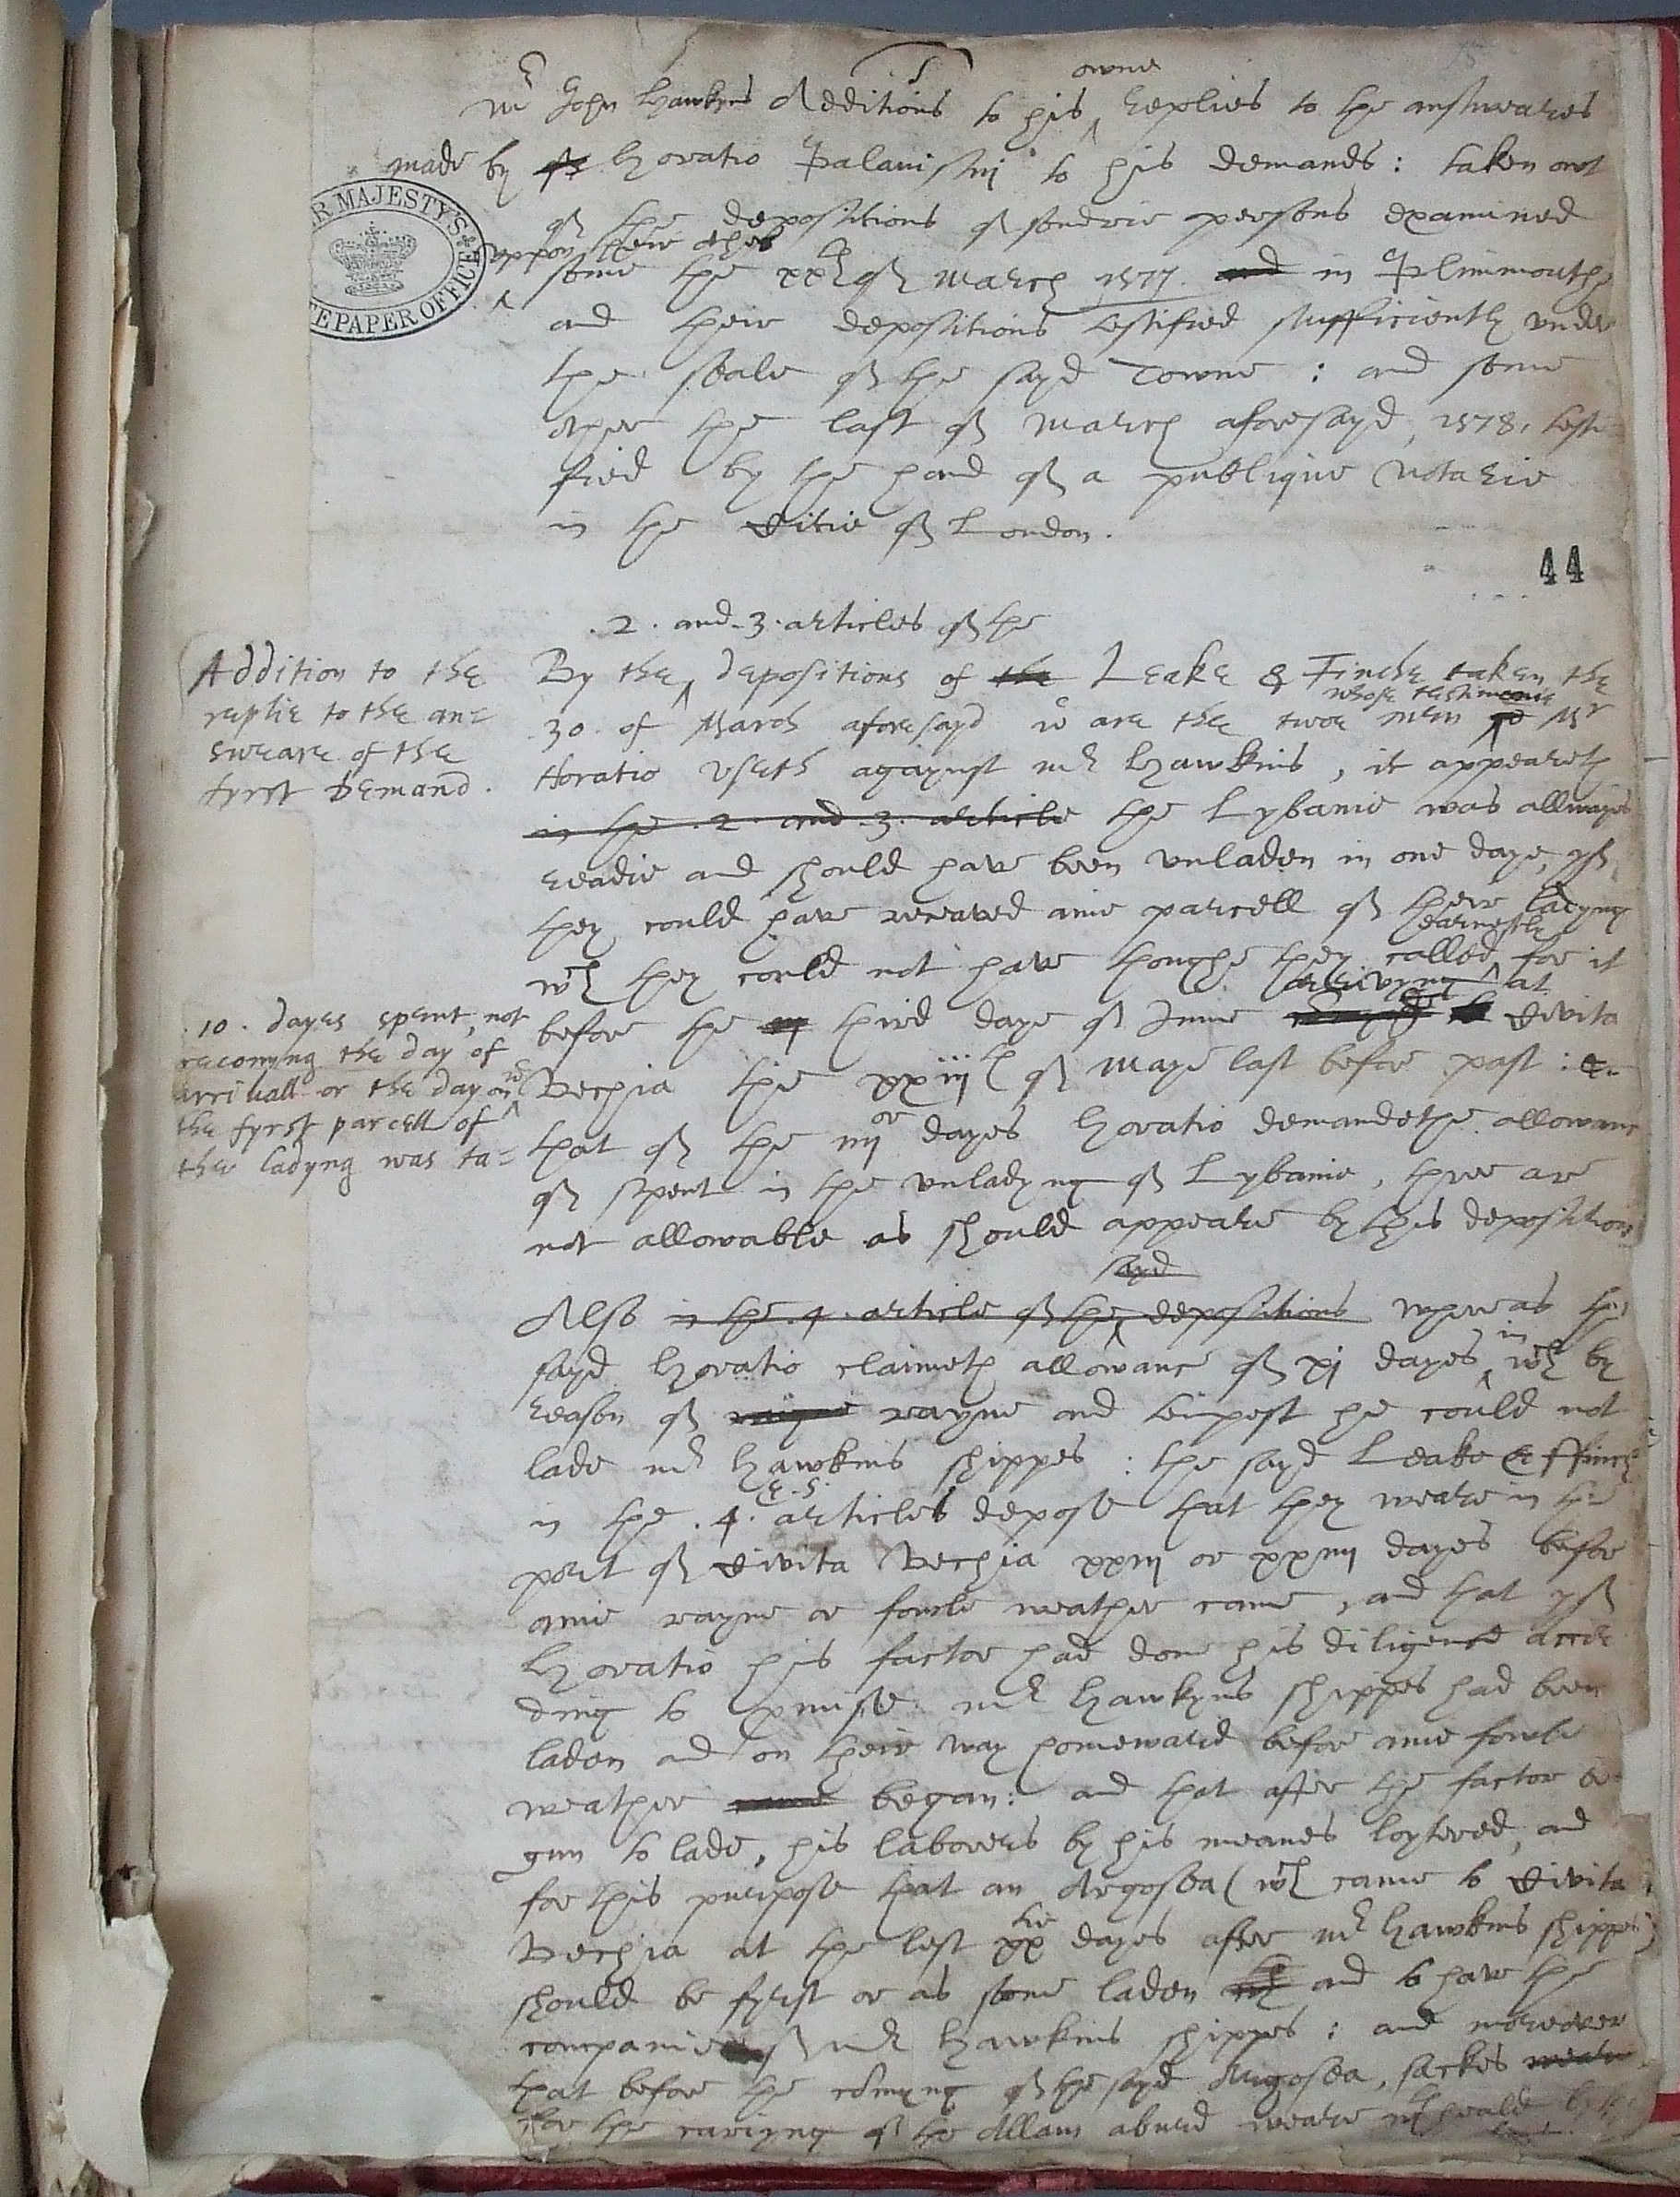 Mr John Hawkins Additions to his owne Replies to the answeares
made by Horatio Palavisini to his demands : taken out
of the depositions of sondrie persons examined
uppon their othes
some the xxth of March 1577. and in Plimmouth,
and their depositions testified sufficiently under
the seale of the sayd Towne : and some
other the last of March aforesayd, 1578, testi-
fied by the hand of a publique Notarie
in the Citie of London.
44
HER MAJESTY'S STATE PAPER OFFICE
.2. and .3. articles of the
Addition to the
replie to the an=
sweare of the
fyrst Demand.
By the depositions of the Leake & Finche taken the
whose testimonie
30. of March aforesayd wc are the twoe men Mr
Horatio useth agaynst Mr Hawkins, it appeareth
in the .2. and .3. article the Lybanie was allwayes
readie and should have been unladen in one daye, yf
they could have receaved anie parcell of their ladyng
earnestly
wch they could not have thoughe they called for it
arivyng at
before the third daye of June Civita
.10. dayes spent, not
reconyng the day of
arrivall or the day on wc
the fyrst parcell of
the ladyng was ta=
Vechia the xxiiijth of Maye last before past :
that of the iiijor dayes Horatio demandethe allowanc
of spent in the unladyng of Lybanie, three are
not allowable as should appeare by this deposition
sayd
Also in the .4. article of the depositions wheras the
in
sayd Horatio claimeth allowance of xj dayes wch by
reason of raigne rayne and tempest he could not
lade Mr Hawkins shippes : the sayd Leake & ffinch
& .5.
in the .4. articles depose that they weare in the
port of Civita Vechia xxiij or xxiiij dayes befor
anie rayne or fowle weather came, and that yf
Horatio his factor had done his diligence accor
ding to promise Mr Hawkyns shippes had been
laden and on their way homeward before anie fowle
weather came began : and that after the factor be-
gun to lade, his laborers by his meanes loytered, and
for this purpose that an Argosea (wch came to Civita
Vechia at the lest xx dayes after Mr Hawkins shippes)
should be fyrst or as soone laden and to have the
companie of Mr Hawkins shippes : and moreover
that before the comyng of the sayd Argosea, sackes weare
for the cariyng of the Allam abourd weare wthheald by